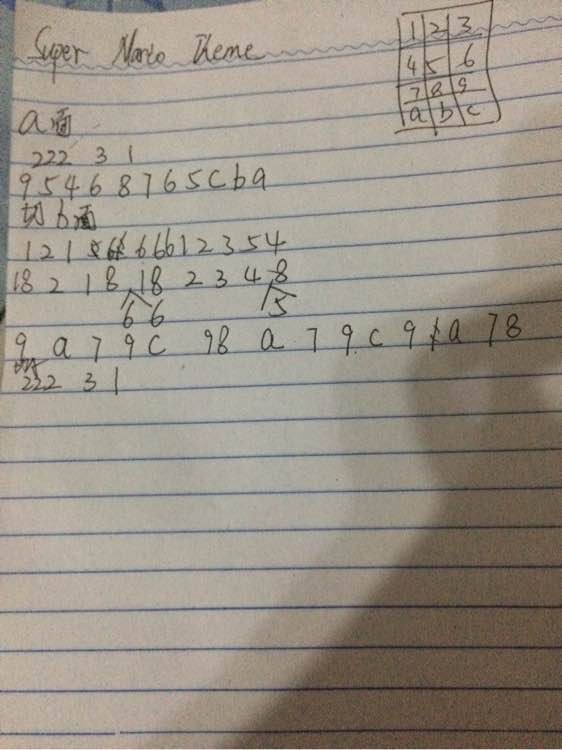 Super Mario Theme
1 2 3
4 5 6
7 8 9
a b c
a面
222 3 1
9 5 4 6 8 7 6 5 c b a
切b面
1 2 1 6 6 6 1 2 3 5 4
18 2 1 8 18 2 3 4 8
6 6 5
9 a 7 9 c 98 a 7 9 c 9 a 78
222 3 1